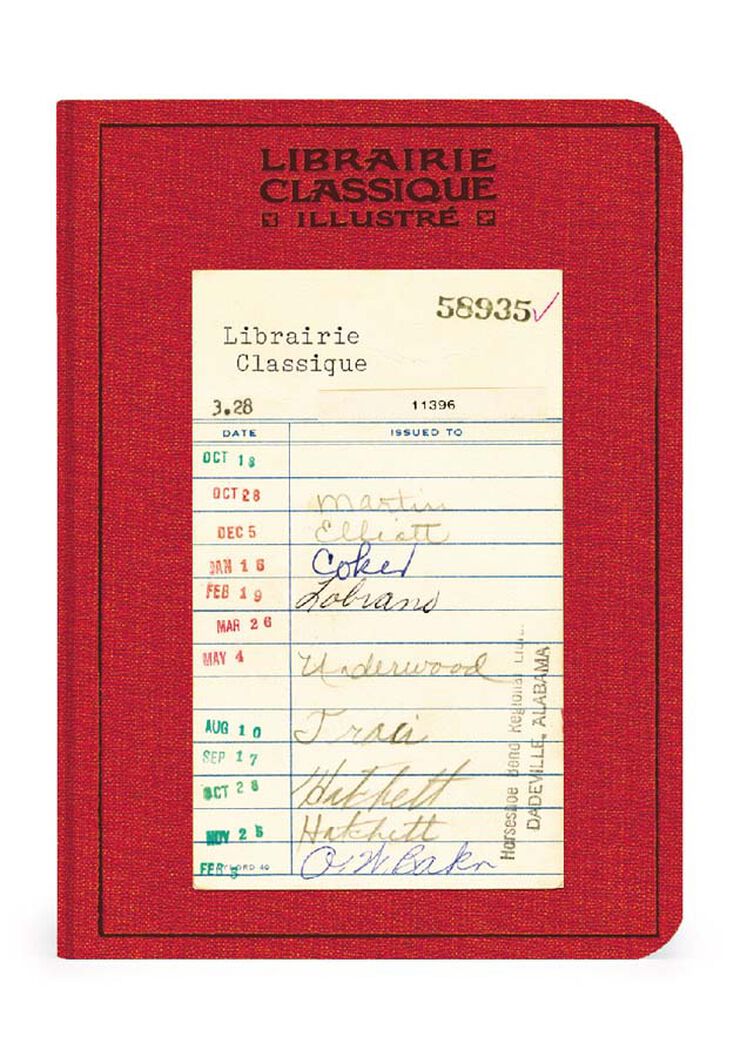 LIBRAIRIE
CLASSIQUE
ILLUSTRÉ
58935✓
Librairie
Classique
3.28 11396
DATE ISSUED TO
OCT 18
OCT 28 Martin
DEC 5 Elliott
JAN 16 Coker
FEB 19 Lobrano
MAR 26
MAY 4 Underwood
AUG 10 Traci
SEP 17
OCT 28 Hatchett
NOV 25 Hatchett
FEB 5 O. W. Baker
Horseshoe Bend Regional
DADEVILLE, ALABAMA